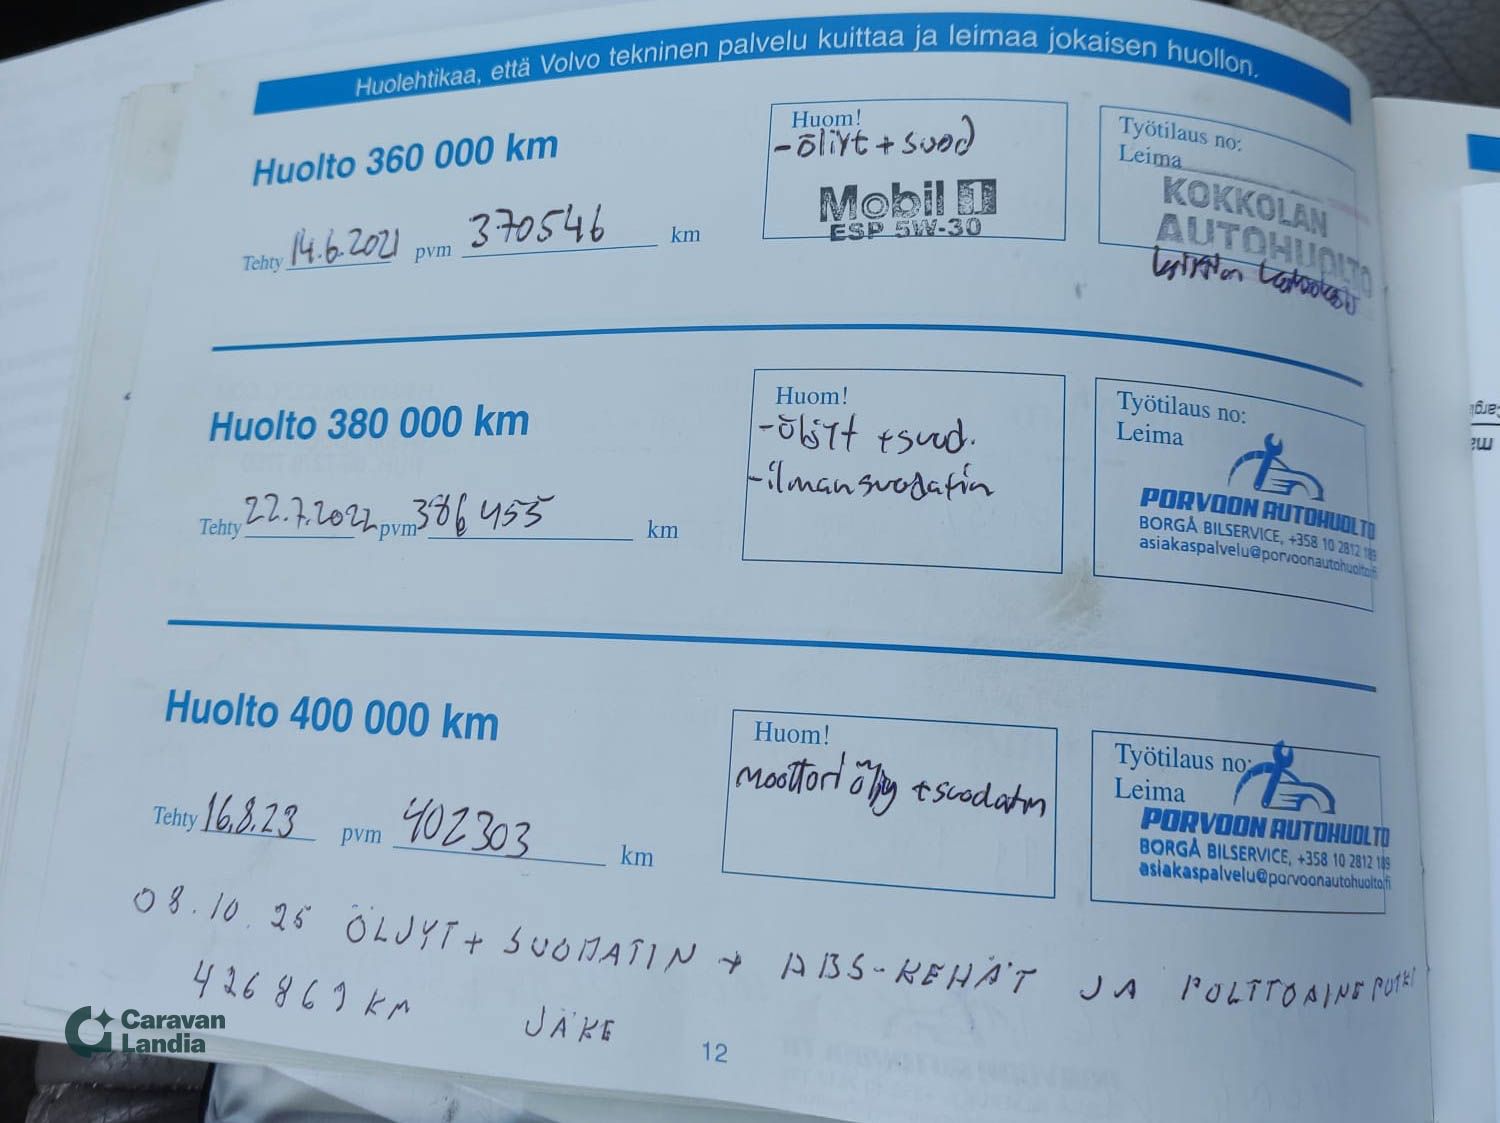 Huolehtikaa, että Volvo tekninen palvelu kuittaa ja leimaa jokaisen huollon.
Huolto 360 000 km
Tehty 14.6.2021 pvm 370546 km
Huom!
-öliyt + suod
Mobil 1
ESP 5W-30
Työtilaus no:
Leima
KOKKOLAN
AUTOHUOLTO
Huolto 380 000 km
Tehty 22.7.2022 pvm 386 455 km
Huom!
-öljyt + suod.
-ilmansuodatin
Työtilaus no:
Leima
PORVOON AUTOHUOLTO
BORGÅ BILSERVICE, +358 10 2812 189
asiakaspalvelu@porvoonautohuolto.fi
Huolto 400 000 km
Tehty 16.8.23 pvm 402303 km
Huom!
moottori öljy + suodatin
Työtilaus no:
Leima
PORVOON AUTOHUOLTO
BORGÅ BILSERVICE, +358 10 2812 189
asiakaspalvelu@porvoonautohuolto.fi
08.10.25 ÖLJYT + SUODATIN + ABS-KEHÄT JA POLTTOAINEPUTKI
426869 KM JÄKE
12
Caravan
Landia